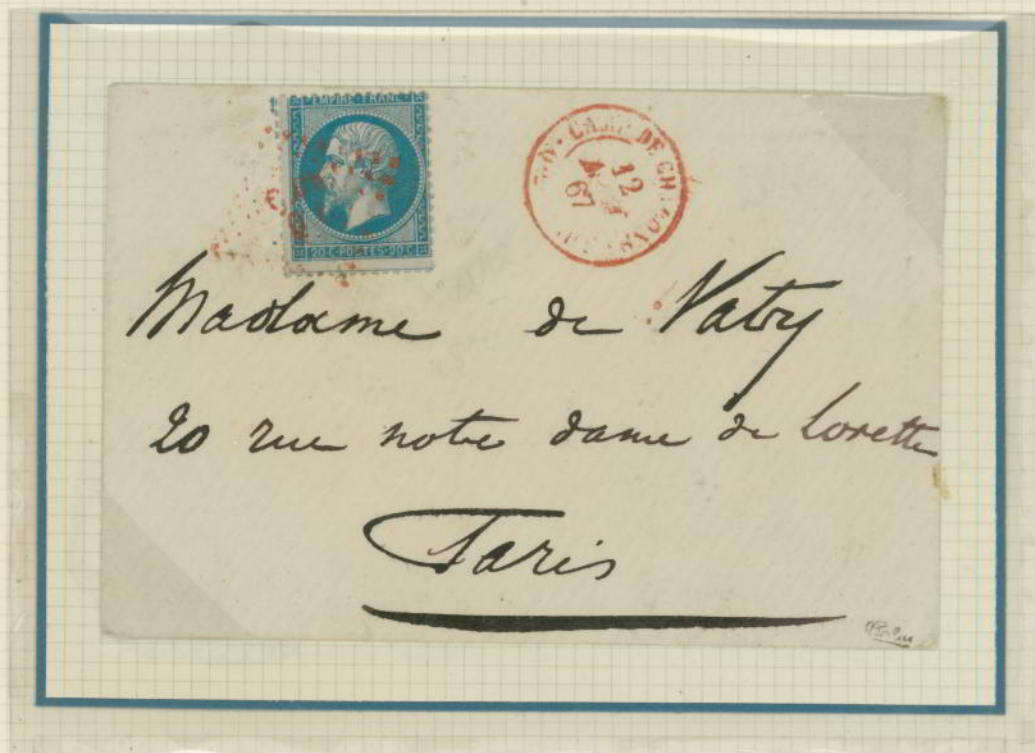 EMPIRE FRANC
20 C POSTES 20 C
CAMP DE CH
4
12
67
Madame de Vatry
20 rue notre dame de lorette
Paris